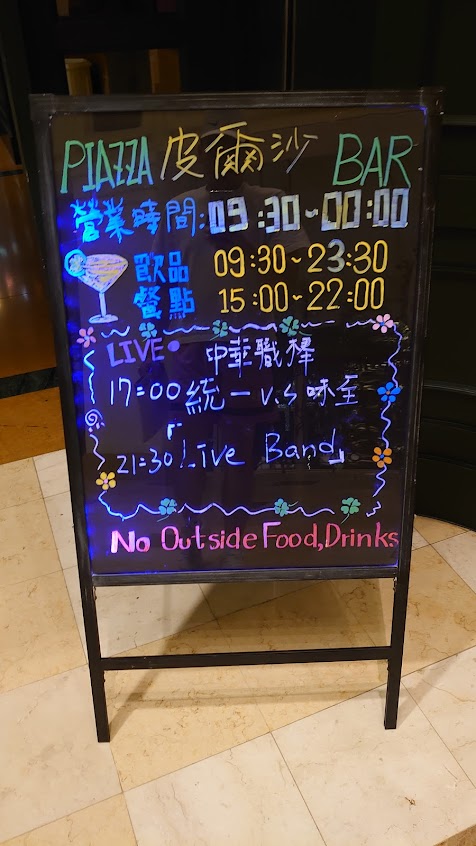 PIAZZA 皮爾沙 BAR
營業時間:09:30~00:00
飲品 09:30~23:30
餐點 15:00~22:00
LIVE• 中華職棒
17:00 統一 v.s 味全
21:30「Live Band」
No Outside Food,Drinks